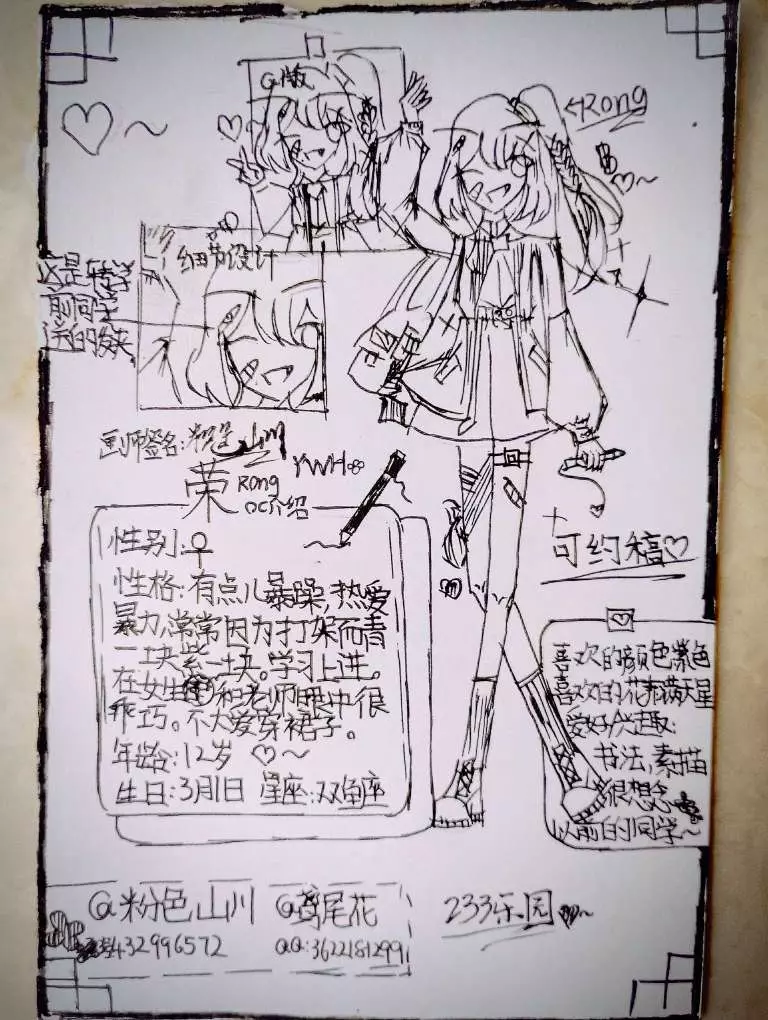 Q版
←Rong
细节设计
这是转学
前同学
送的发夹
画师签名:粉色山川
YWH
荣 Rong
OC介绍
性别:♀
性格:有点儿暴躁,热爱
暴力,常常因为打架而青
一块紫一块。学习上进。
在女生和老师眼中很
乖巧。不太爱穿裙子。
年龄:12岁 ♡~
生日:3月1日 星座:双鱼座
可约稿♡
喜欢的颜色紫色
喜欢的花:满天星
爱好兴趣:
书法,素描
很想念
以前的同学~
@粉色山川 @鸢尾花
432996572 QQ:3622181299
233乐园